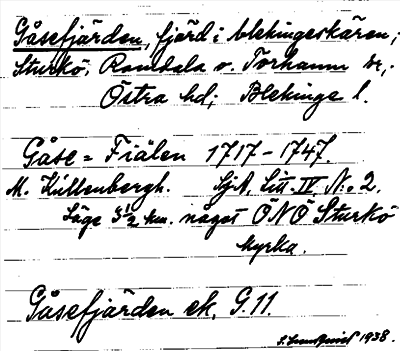 Gåsefjärden, fjärd i Blekingeskären,
Sturkö, Ramdala o. Torhamn sr,
Östra hd, Blekinge l.
Gåse = Fiälen 1717-1747.
M. Küllenbergh. SjA, Litt. IV N:o 2.
Läge 3½ km. något ÖNÖ Sturkö
kyrka.
Gåsefjärden ek. G.11.
S. Lundquist 1938.